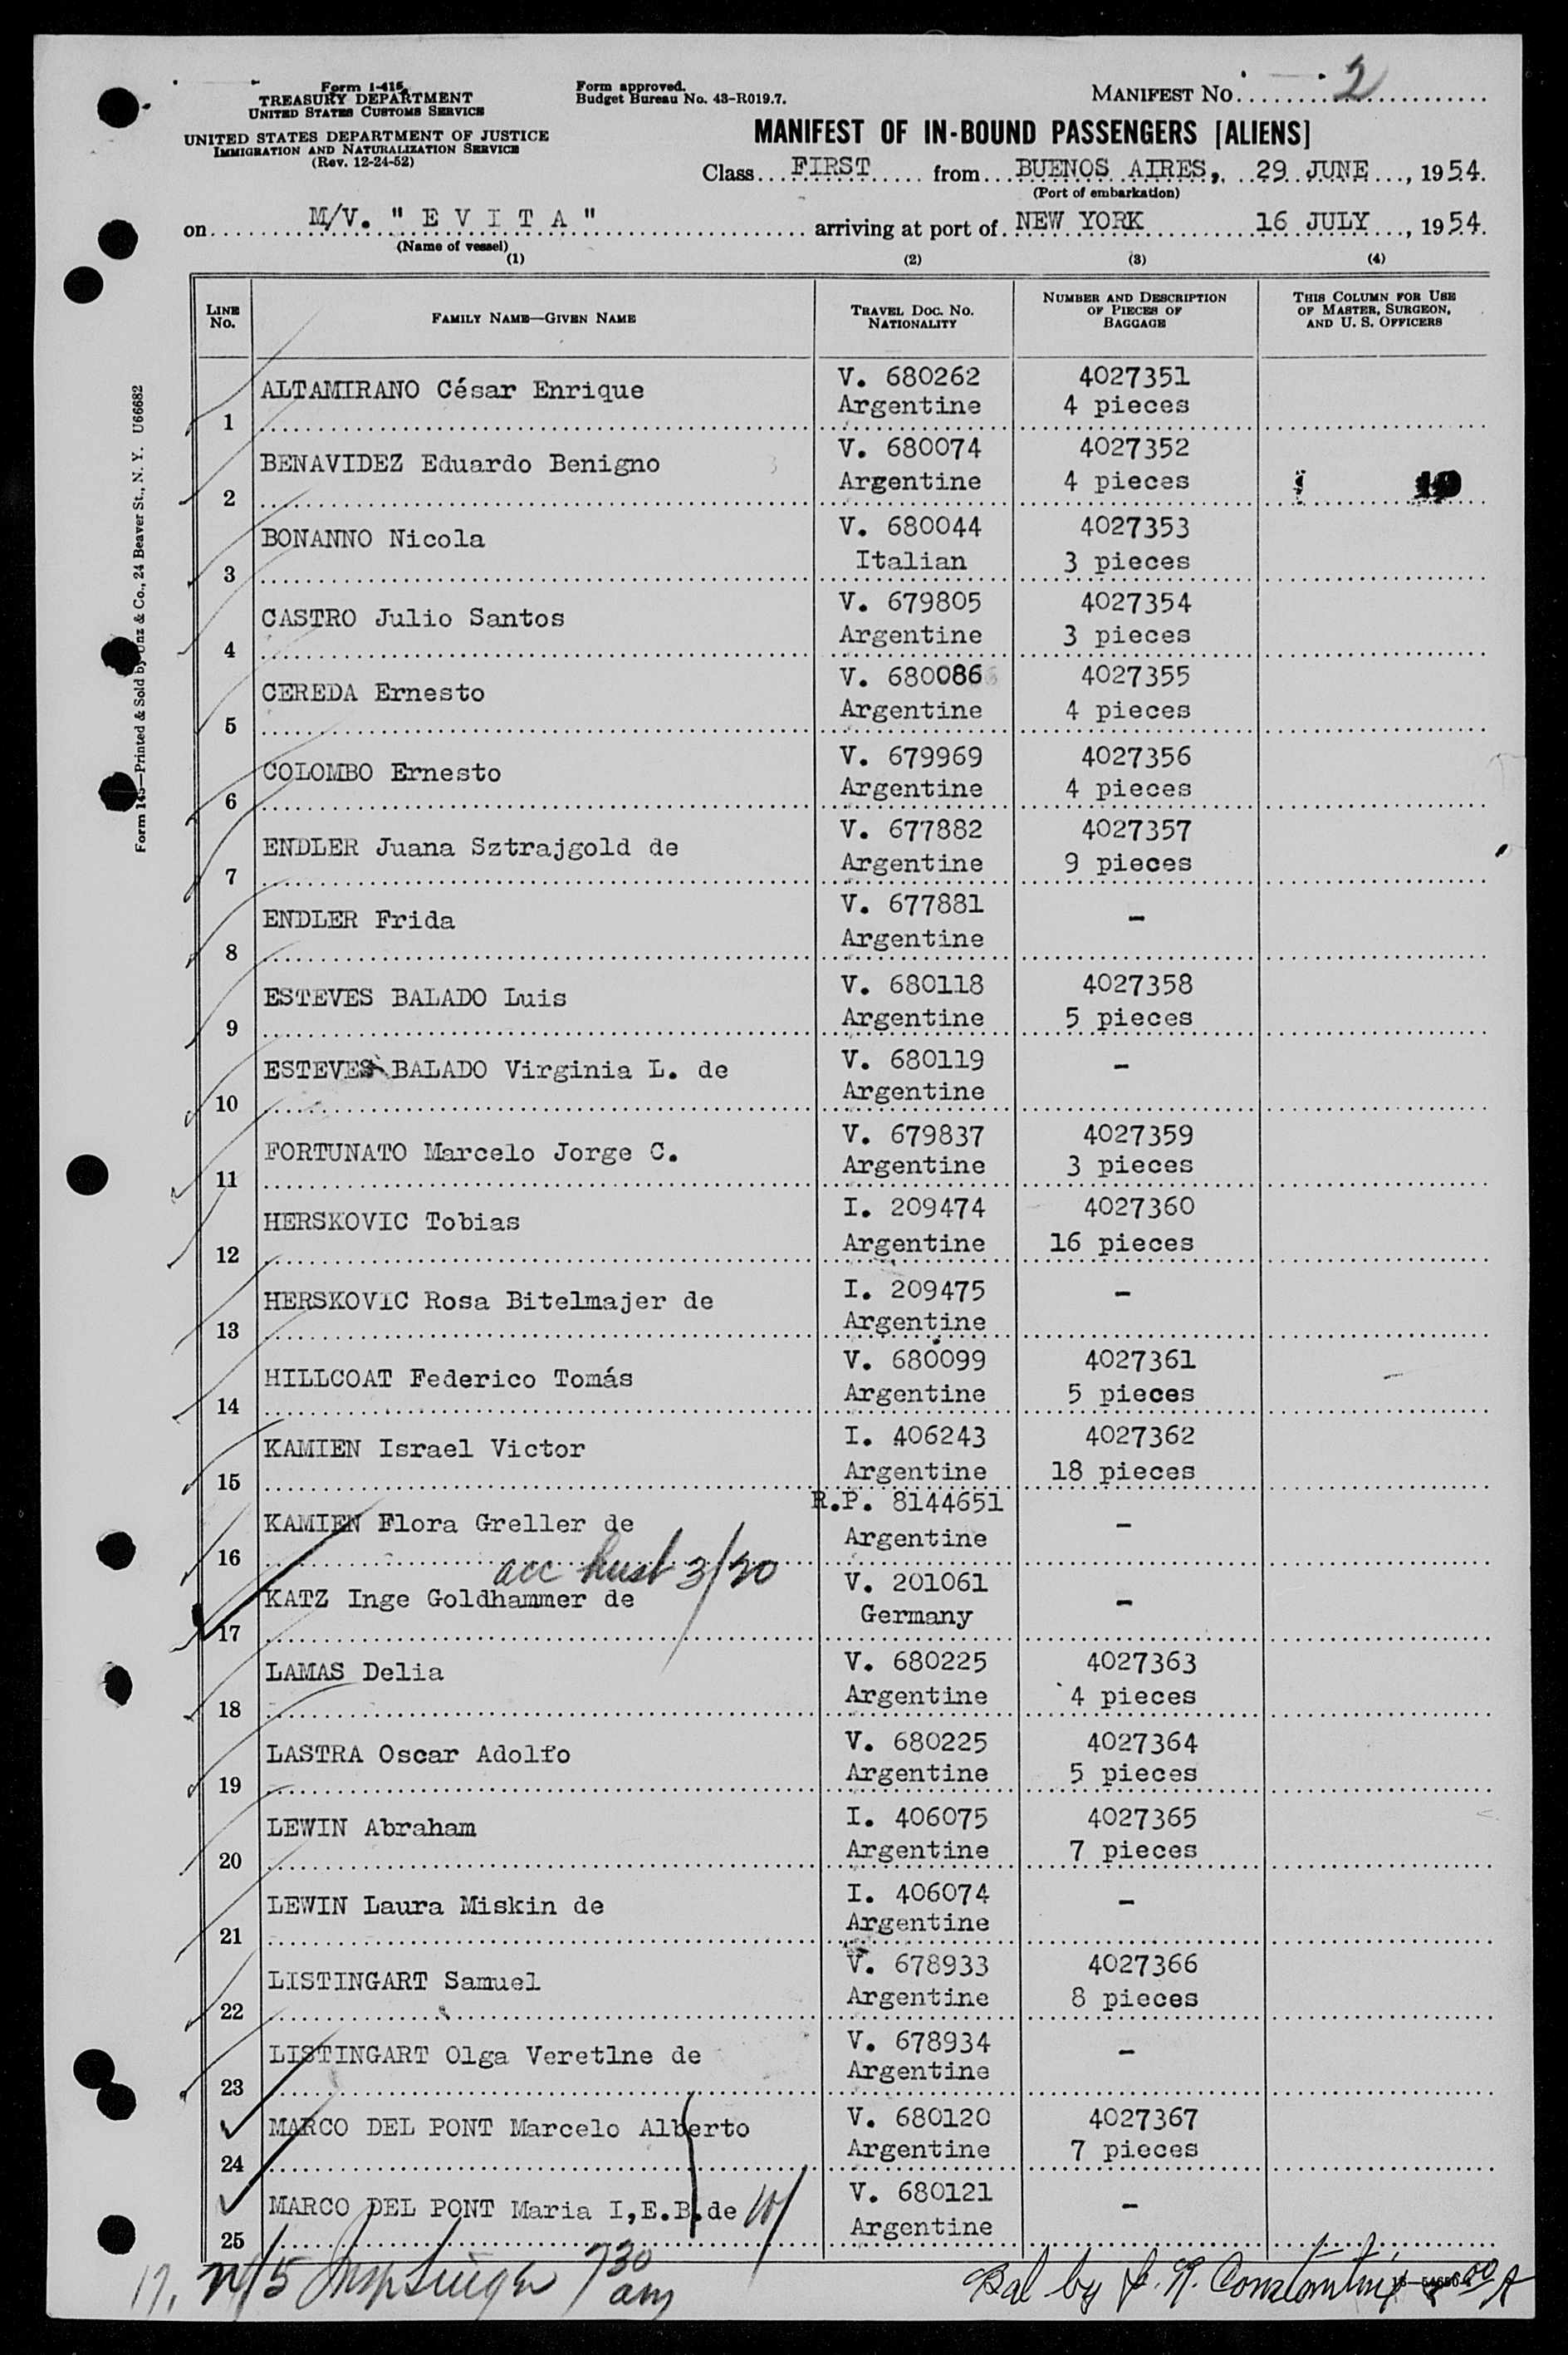 Form I-415
TREASURY DEPARTMENT
UNITED STATES CUSTOMS SERVICE
UNITED STATES DEPARTMENT OF JUSTICE
IMMIGRATION AND NATURALIZATION SERVICE
(Rev. 12-24-52)
Form approved.
Budget Bureau No. 43-R019.7.
MANIFEST NO. 2
MANIFEST OF IN-BOUND PASSENGERS [ALIENS]
Class FIRST from BUENOS AIRES, 29 JUNE, 1954.
(Port of embarkation)
on M/V. " E V I T A " arriving at port of NEW YORK 16 JULY, 1954.
(Name of vessel)
(1) (2) (3) (4)
LINE NO. FAMILY NAME—GIVEN NAME TRAVEL DOC. NO. NATIONALITY NUMBER AND DESCRIPTION OF PIECES OF BAGGAGE THIS COLUMN FOR USE OF MASTER, SURGEON, AND U. S. OFFICERS
1 ALTAMIRANO César Enrique V. 680262 4027351
Argentine 4 pieces
2 BENAVIDEZ Eduardo Benigno V. 680074 4027352
Argentine 4 pieces
3 BONANNO Nicola V. 680044 4027353
Italian 3 pieces
4 CASTRO Julio Santos V. 679805 4027354
Argentine 3 pieces
5 CEREDA Ernesto V. 680086 4027355
Argentine 4 pieces
6 COLOMBO Ernesto V. 679969 4027356
Argentine 4 pieces
7 ENDLER Juana Sztrajgold de V. 677882 4027357
Argentine 9 pieces
8 ENDLER Frida V. 677881 -
Argentine
9 ESTEVES BALADO Luis V. 680118 4027358
Argentine 5 pieces
10 ESTEVES BALADO Virginia L. de V. 680119 -
Argentine
11 FORTUNATO Marcelo Jorge C. V. 679837 4027359
Argentine 3 pieces
12 HERSKOVIC Tobias I. 209474 4027360
Argentine 16 pieces
13 HERSKOVIC Rosa Bitelmajer de I. 209475 -
Argentine
14 HILLCOAT Federico Tomás V. 680099 4027361
Argentine 5 pieces
15 KAMIEN Israel Victor I. 406243 4027362
Argentine 18 pieces
16 KAMIEN Flora Greller de R.P. 8144651 -
Argentine
acc husb 3/20
17 KATZ Inge Goldhammer de V. 201061 -
Germany
18 LAMAS Delia V. 680225 4027363
Argentine 4 pieces
19 LASTRA Oscar Adolfo V. 680225 4027364
Argentine 5 pieces
20 LEWIN Abraham I. 406075 4027365
Argentine 7 pieces
21 LEWIN Laura Miskin de I. 406074 -
Argentine
22 LISTINGART Samuel V. 678933 4027366
Argentine 8 pieces
23 LISTINGART Olga Veretlne de V. 678934 -
Argentine
24 MARCO DEL PONT Marcelo Alberto V. 680120 4027367
Argentine 7 pieces
25 MARCO DEL PONT Maria I,E.B.de V. 680121 -
Argentine
17. 730 am
Bal by
Form 145—Printed & Sold by Unz & Co., 24 Beaver St., N. Y. U66682